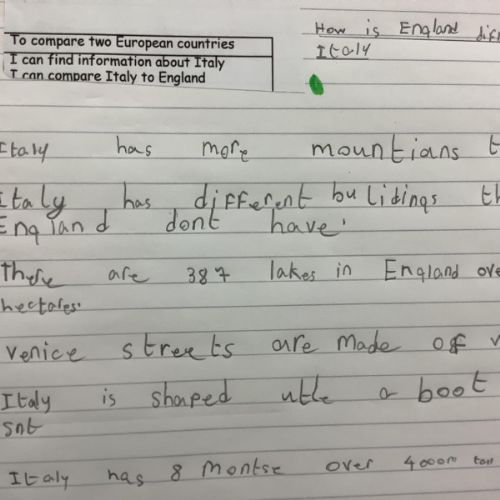 To compare two European countries
I can find information about Italy
I can compare Italy to England
How is England
Italy
Italy has more mountians
Italy has different bulidings
England dont have.
there are 387 lakes in England
hectares.
venice streets are made of
Italy is shaped a boot
snt
Italy has 8 montse over 4000m tall